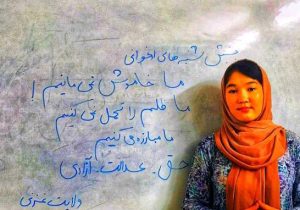 جنبش شبه های ارغوانی
ما خاموش نمی مانیم!
ما ظلم را تحمل نمی کنیم
ما مبارزه می کنیم
حق. عدالت. آزادی
ولایت غزنی